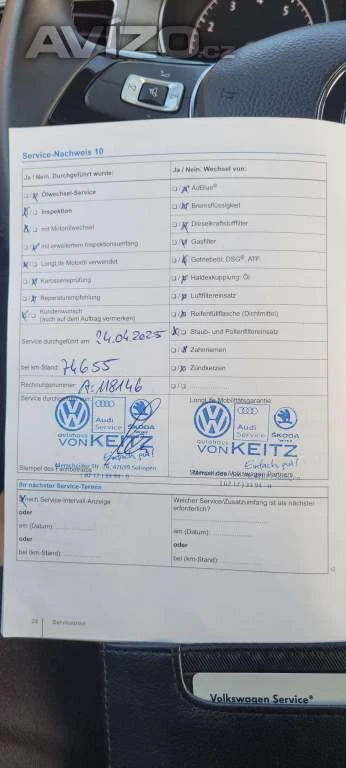 AVÍZO.cz
Service-Nachweis 10
Ja / Nein. Durchgeführt wurde:
Ölwechsel-Service
Inspektion
mit Motorölwechsel
mit erweitertem Inspektionsumfang
LongLife Motoröl verwendet
Karosserieprüfung
Reparaturempfehlung
Kundenwunsch
(auch auf dem Auftrag vermerken)
Service durchgeführt am: 24.04.2025
bei km-Stand: 74655
Rechnungsnummer: A-118146
Service durchgeführt
Audi
Service
ŠKODA
autohaus
VON KEITZ
Einfach gut!
Merscheider Str. 76, 42699 Solingen
Stempel des Fachbetriebs
Ja / Nein. Wechsel von:
AdBlue®
Bremsflüssigkeit
Dieselkraftstofffilter
Gasfilter
Getriebeöl: DSG®, ATF
Haldexkupplung: Öl
Luftfiltereinsatz
Reifenfüllflasche (Dichtmittel)
Staub- und Pollenfiltereinsatz
Zahnriemen
Zündkerzen
LongLife Mobilitätsgarantie
Audi
Service
ŠKODA
autohaus
VON KEITZ
Einfach gut!
Stempel des Volkswagen Partners
Ihr nächster Service-Termin
nach Service-Intervall-Anzeige
oder
am (Datum):
oder
bei (km-Stand):
Welcher Service/Zusatzumfang ist als nächster
erforderlich?
am (Datum):
oder
bei (km-Stand):
24
Serviceplan
Volkswagen Service®